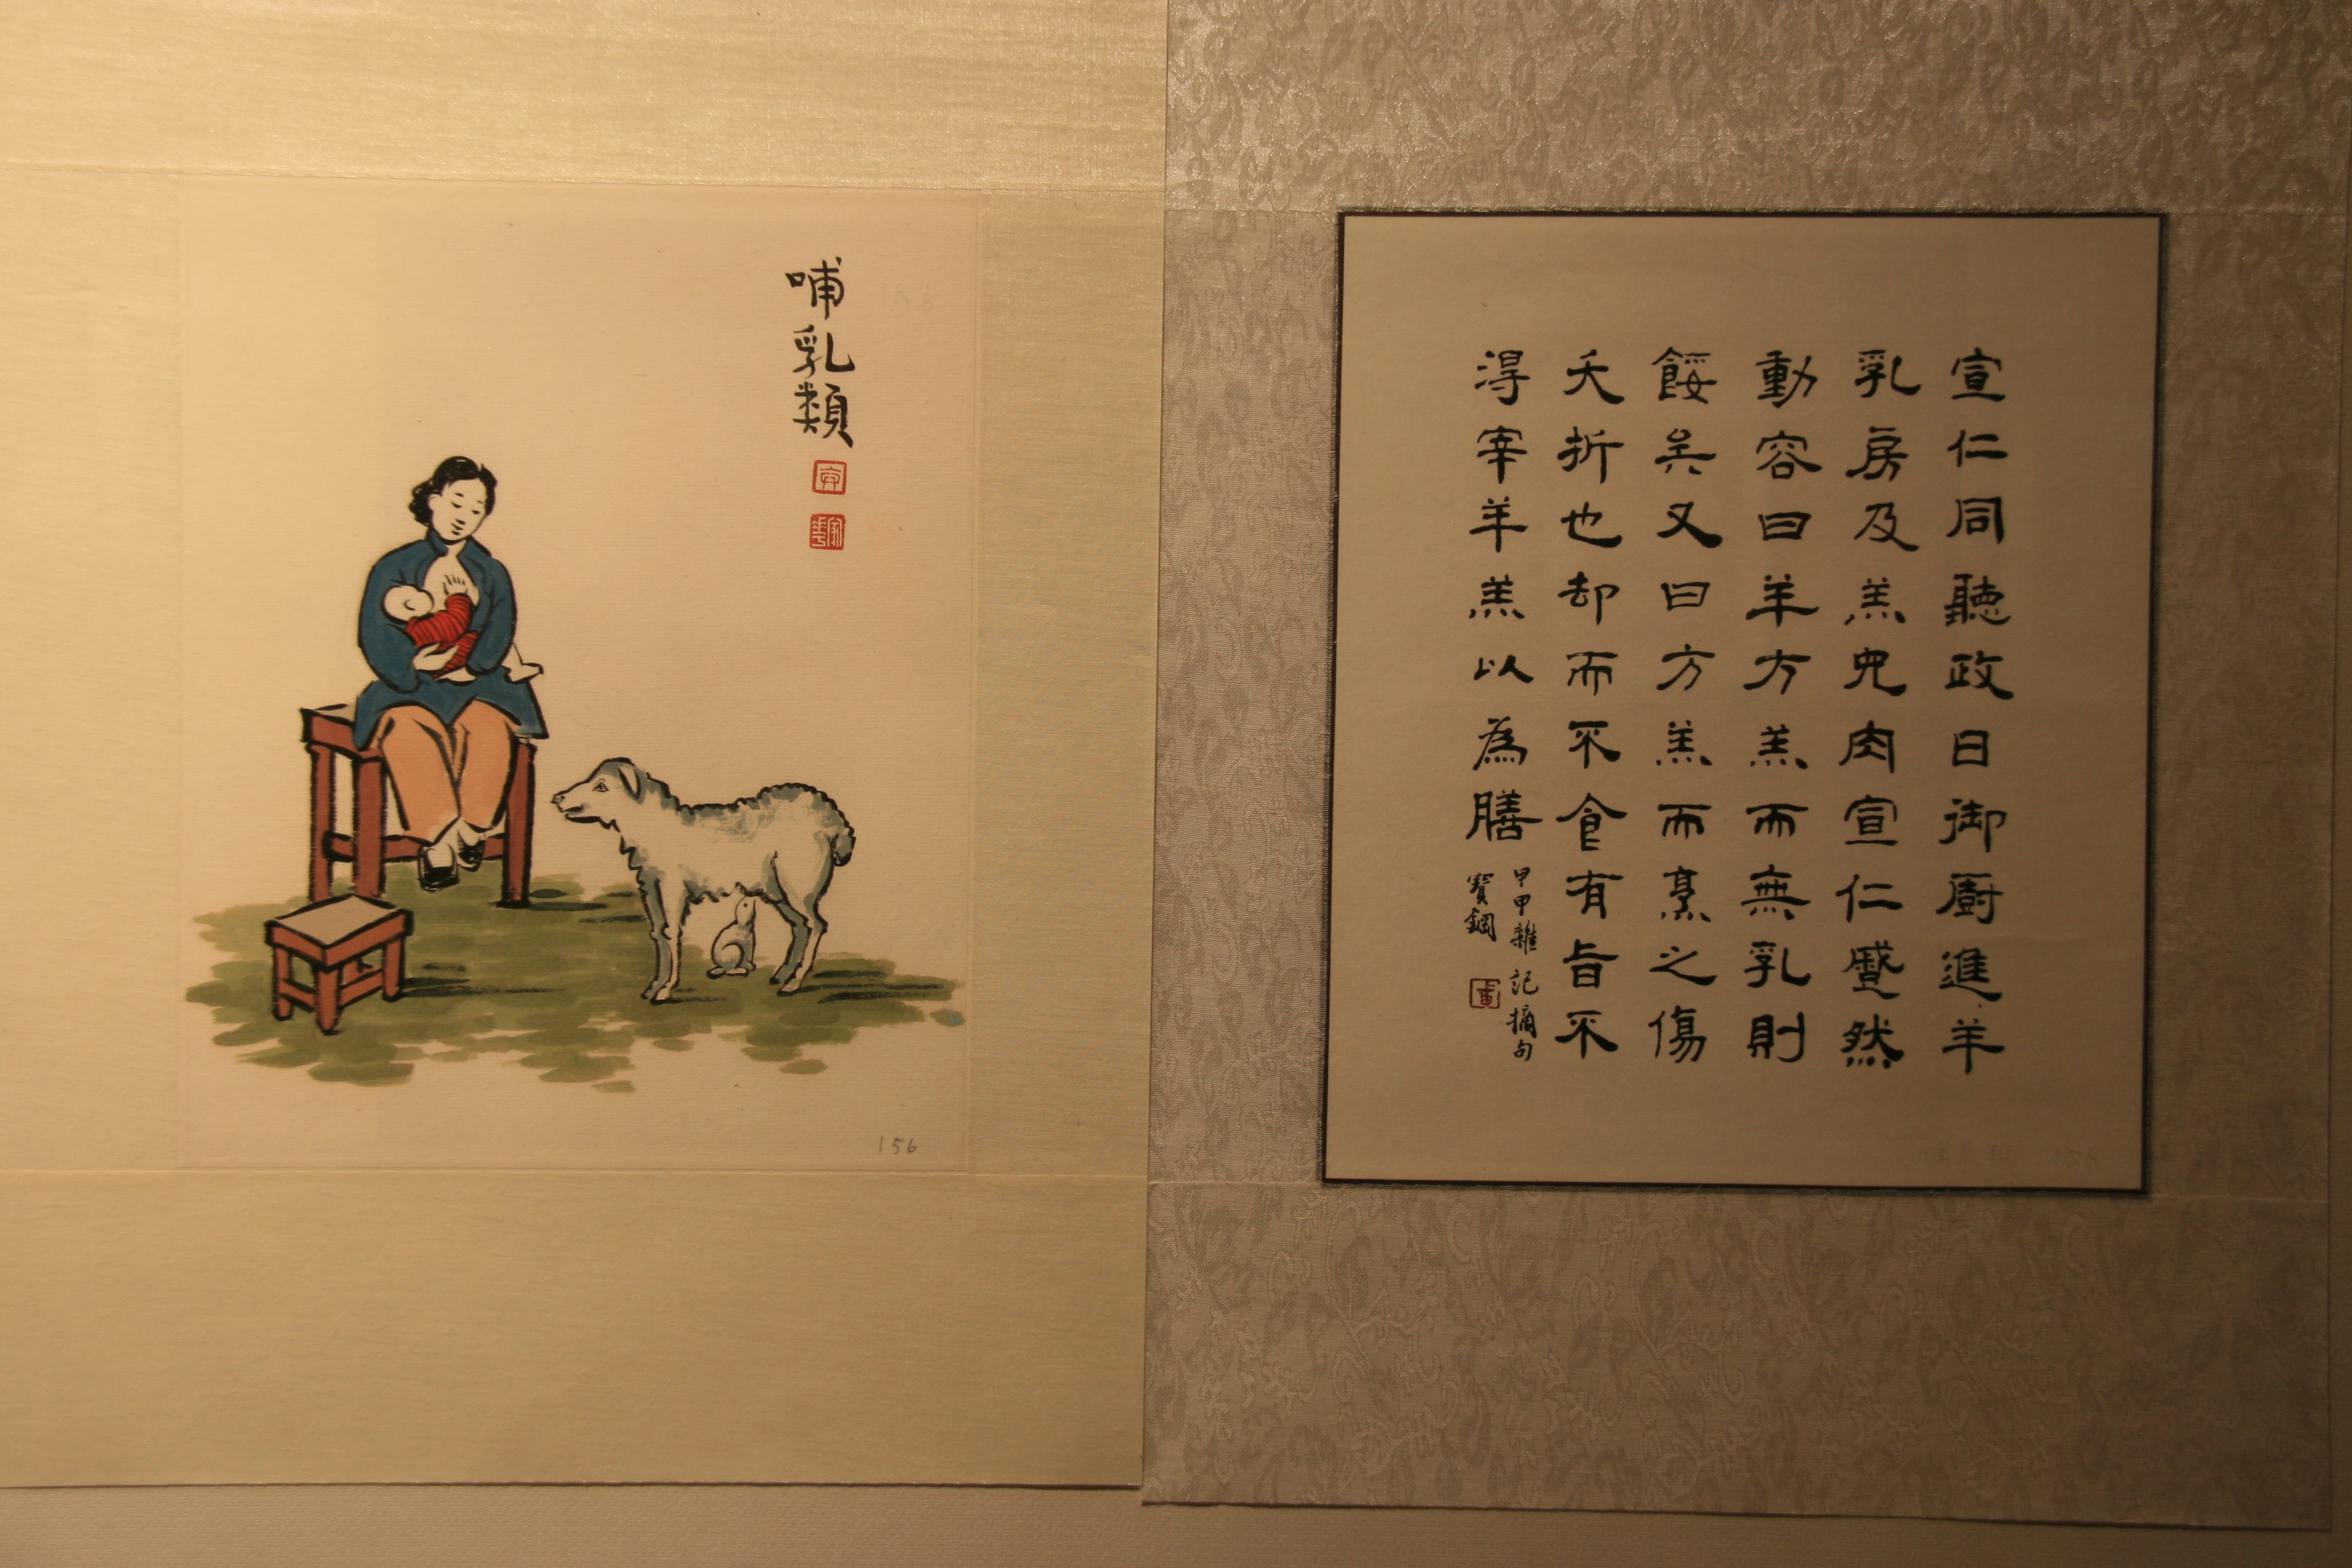 哺乳類
156
宣仁同聽政日御厨進羊
乳房及羔兒肉宣仁蹙然
動容曰羊方羔而無乳則
餒矣又曰方羔而烹之傷
夭折也却而不食有旨不
得宰羊羔以為膳
甲申雜記摘句
寶鋼